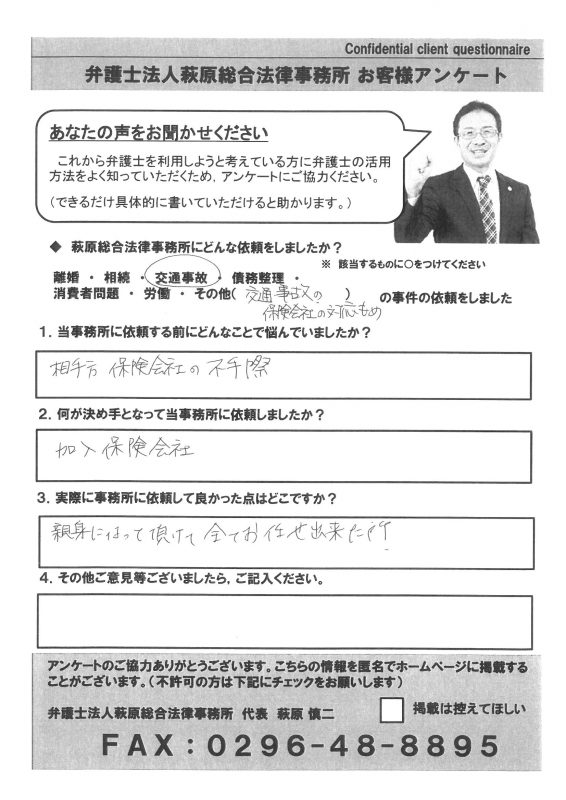 Confidential client questionnaire
弁護士法人萩原総合法律事務所 お客様アンケート
あなたの声をお聞かせください
これから弁護士を利用しようと考えている方に弁護士の活用
方法をよく知っていただくため，アンケートにご協力ください。
（できるだけ具体的に書いていただけると助かります。）
◆ 萩原総合法律事務所にどんな依頼をしましたか？
※ 該当するものに○をつけてください
離婚 ・ 相続 ・ 交通事故 ・ 債務整理 ・
消費者問題 ・ 労働 ・ その他( 交通事故の ) の事件の依頼をしました
保険会社の対応もめ
1．当事務所に依頼する前にどんなことで悩んでいましたか？
相手方 保険会社の不手際
2．何が決め手となって当事務所に依頼しましたか？
加入保険会社
3．実際に事務所に依頼して良かった点はどこですか？
親身になって頂けて全てお任せ出来た所!
4．その他ご意見等ございましたら，ご記入ください。
アンケートのご協力ありがとうございます。こちらの情報を匿名でホームページに掲載する
ことがございます。（不許可の方は下記にチェックをお願いします）
弁護士法人萩原総合法律事務所 代表 萩原 慎二 掲載は控えてほしい
FAX：0296-48-8895